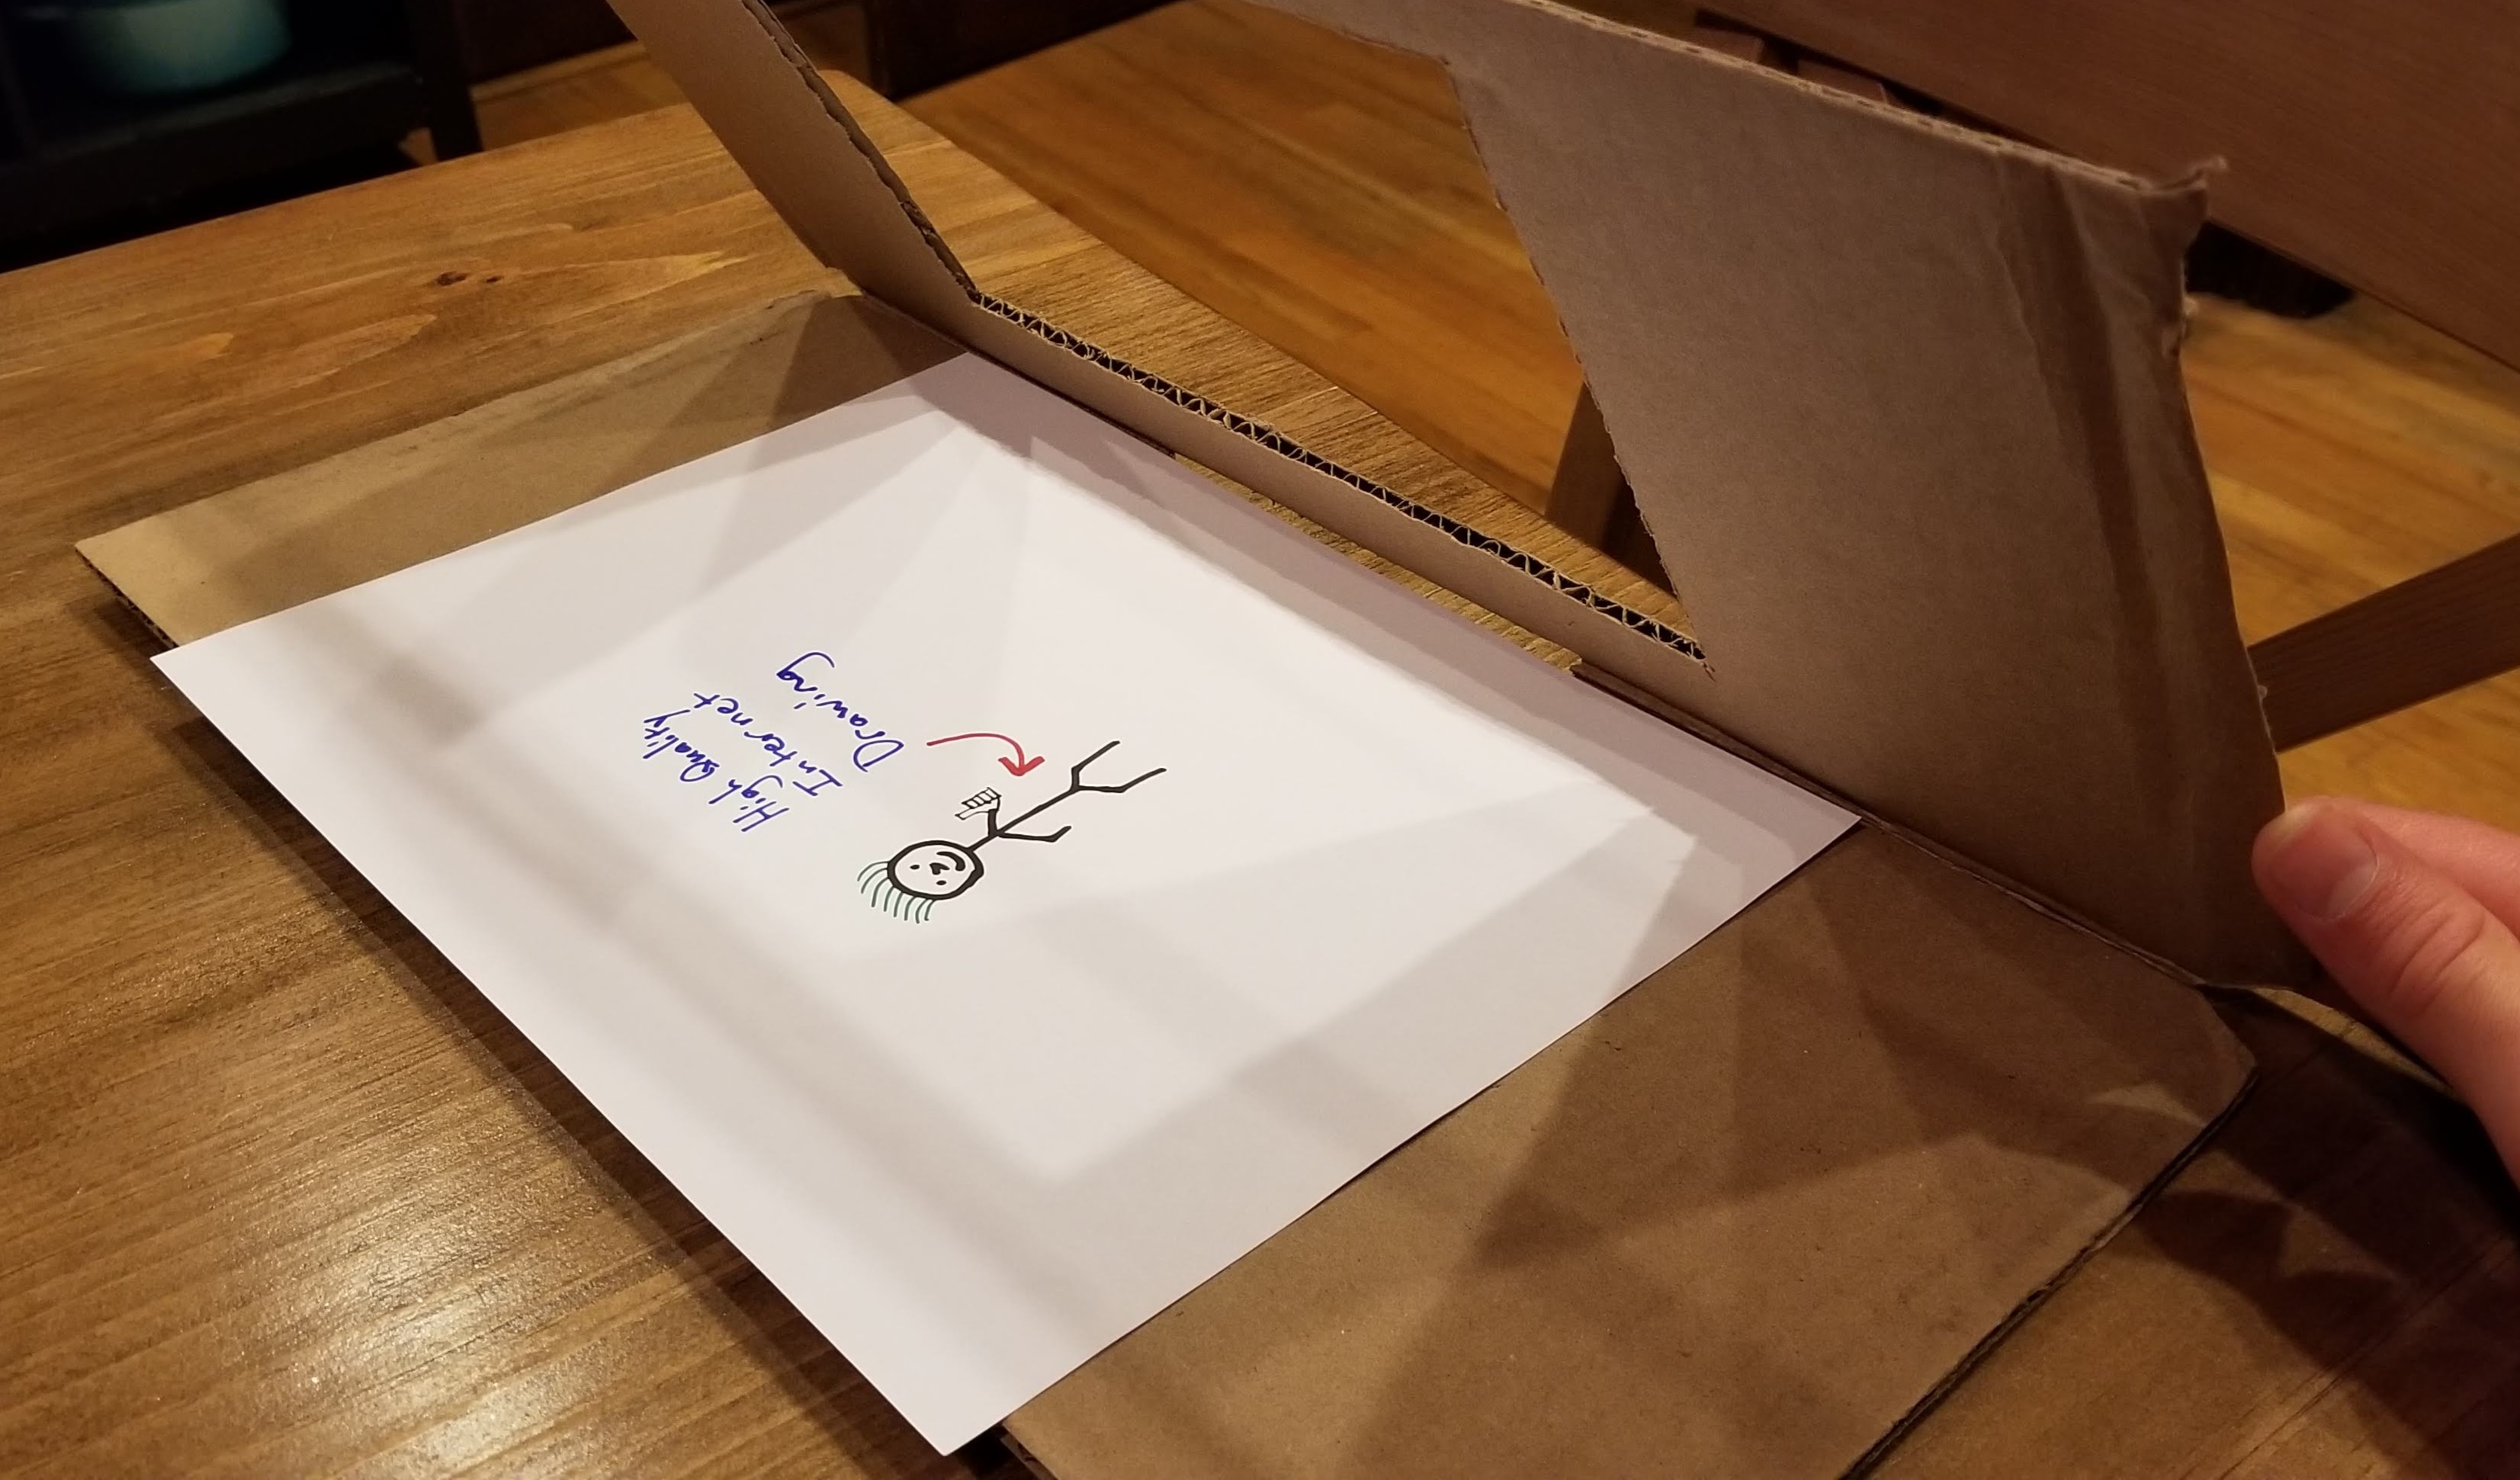 High Quality
Internet
Drawing